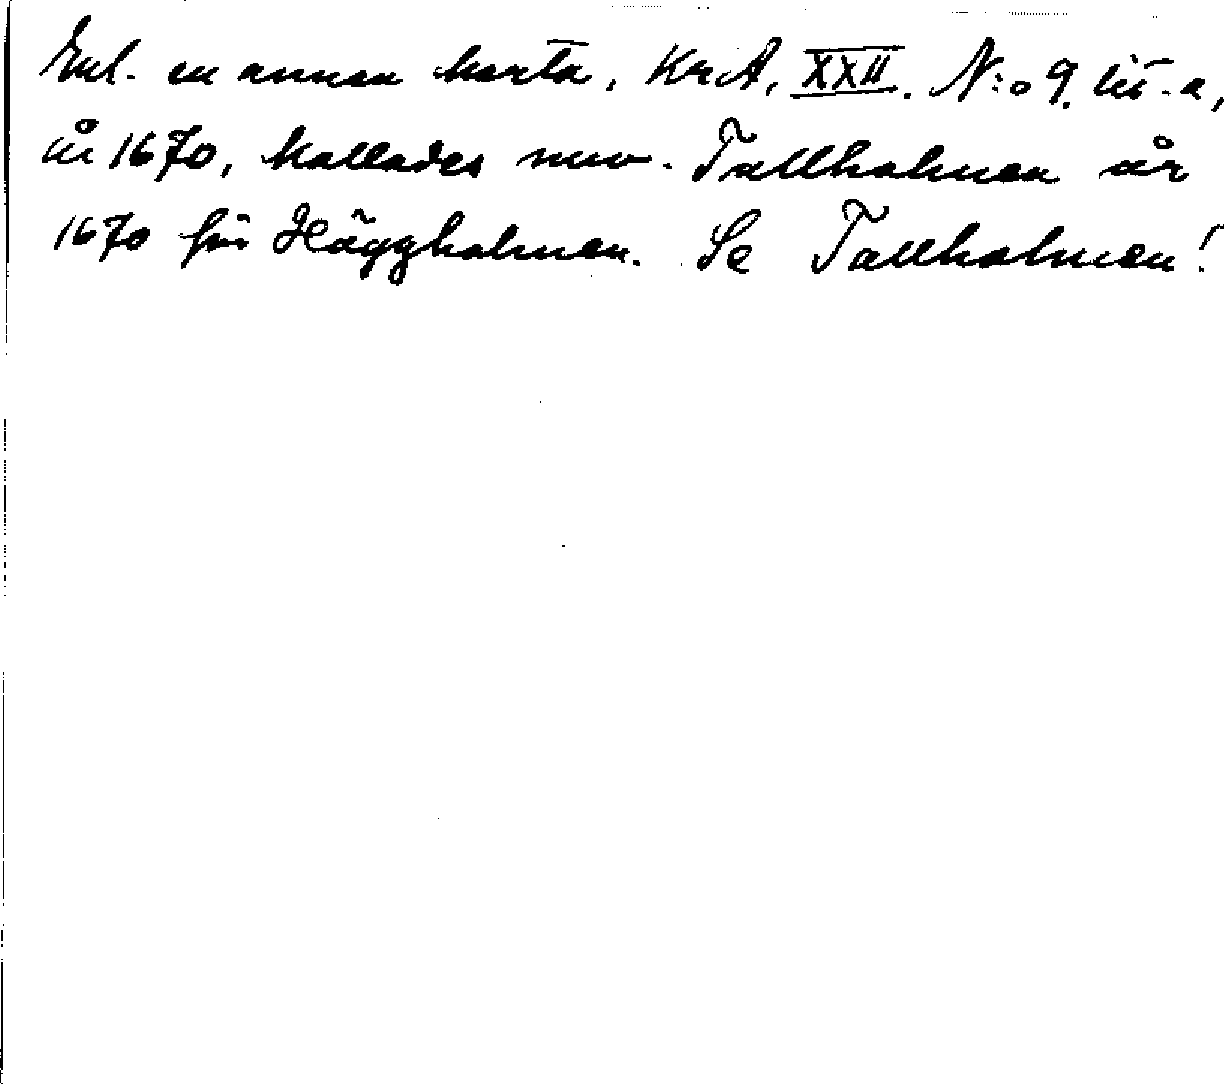 Enl. en annan karta, KrA, XXII. N:o 9. lit. a,
år 1670, kallades nuv. Tallholmen år
1670 för Häggholmen. Se Tallholmen!